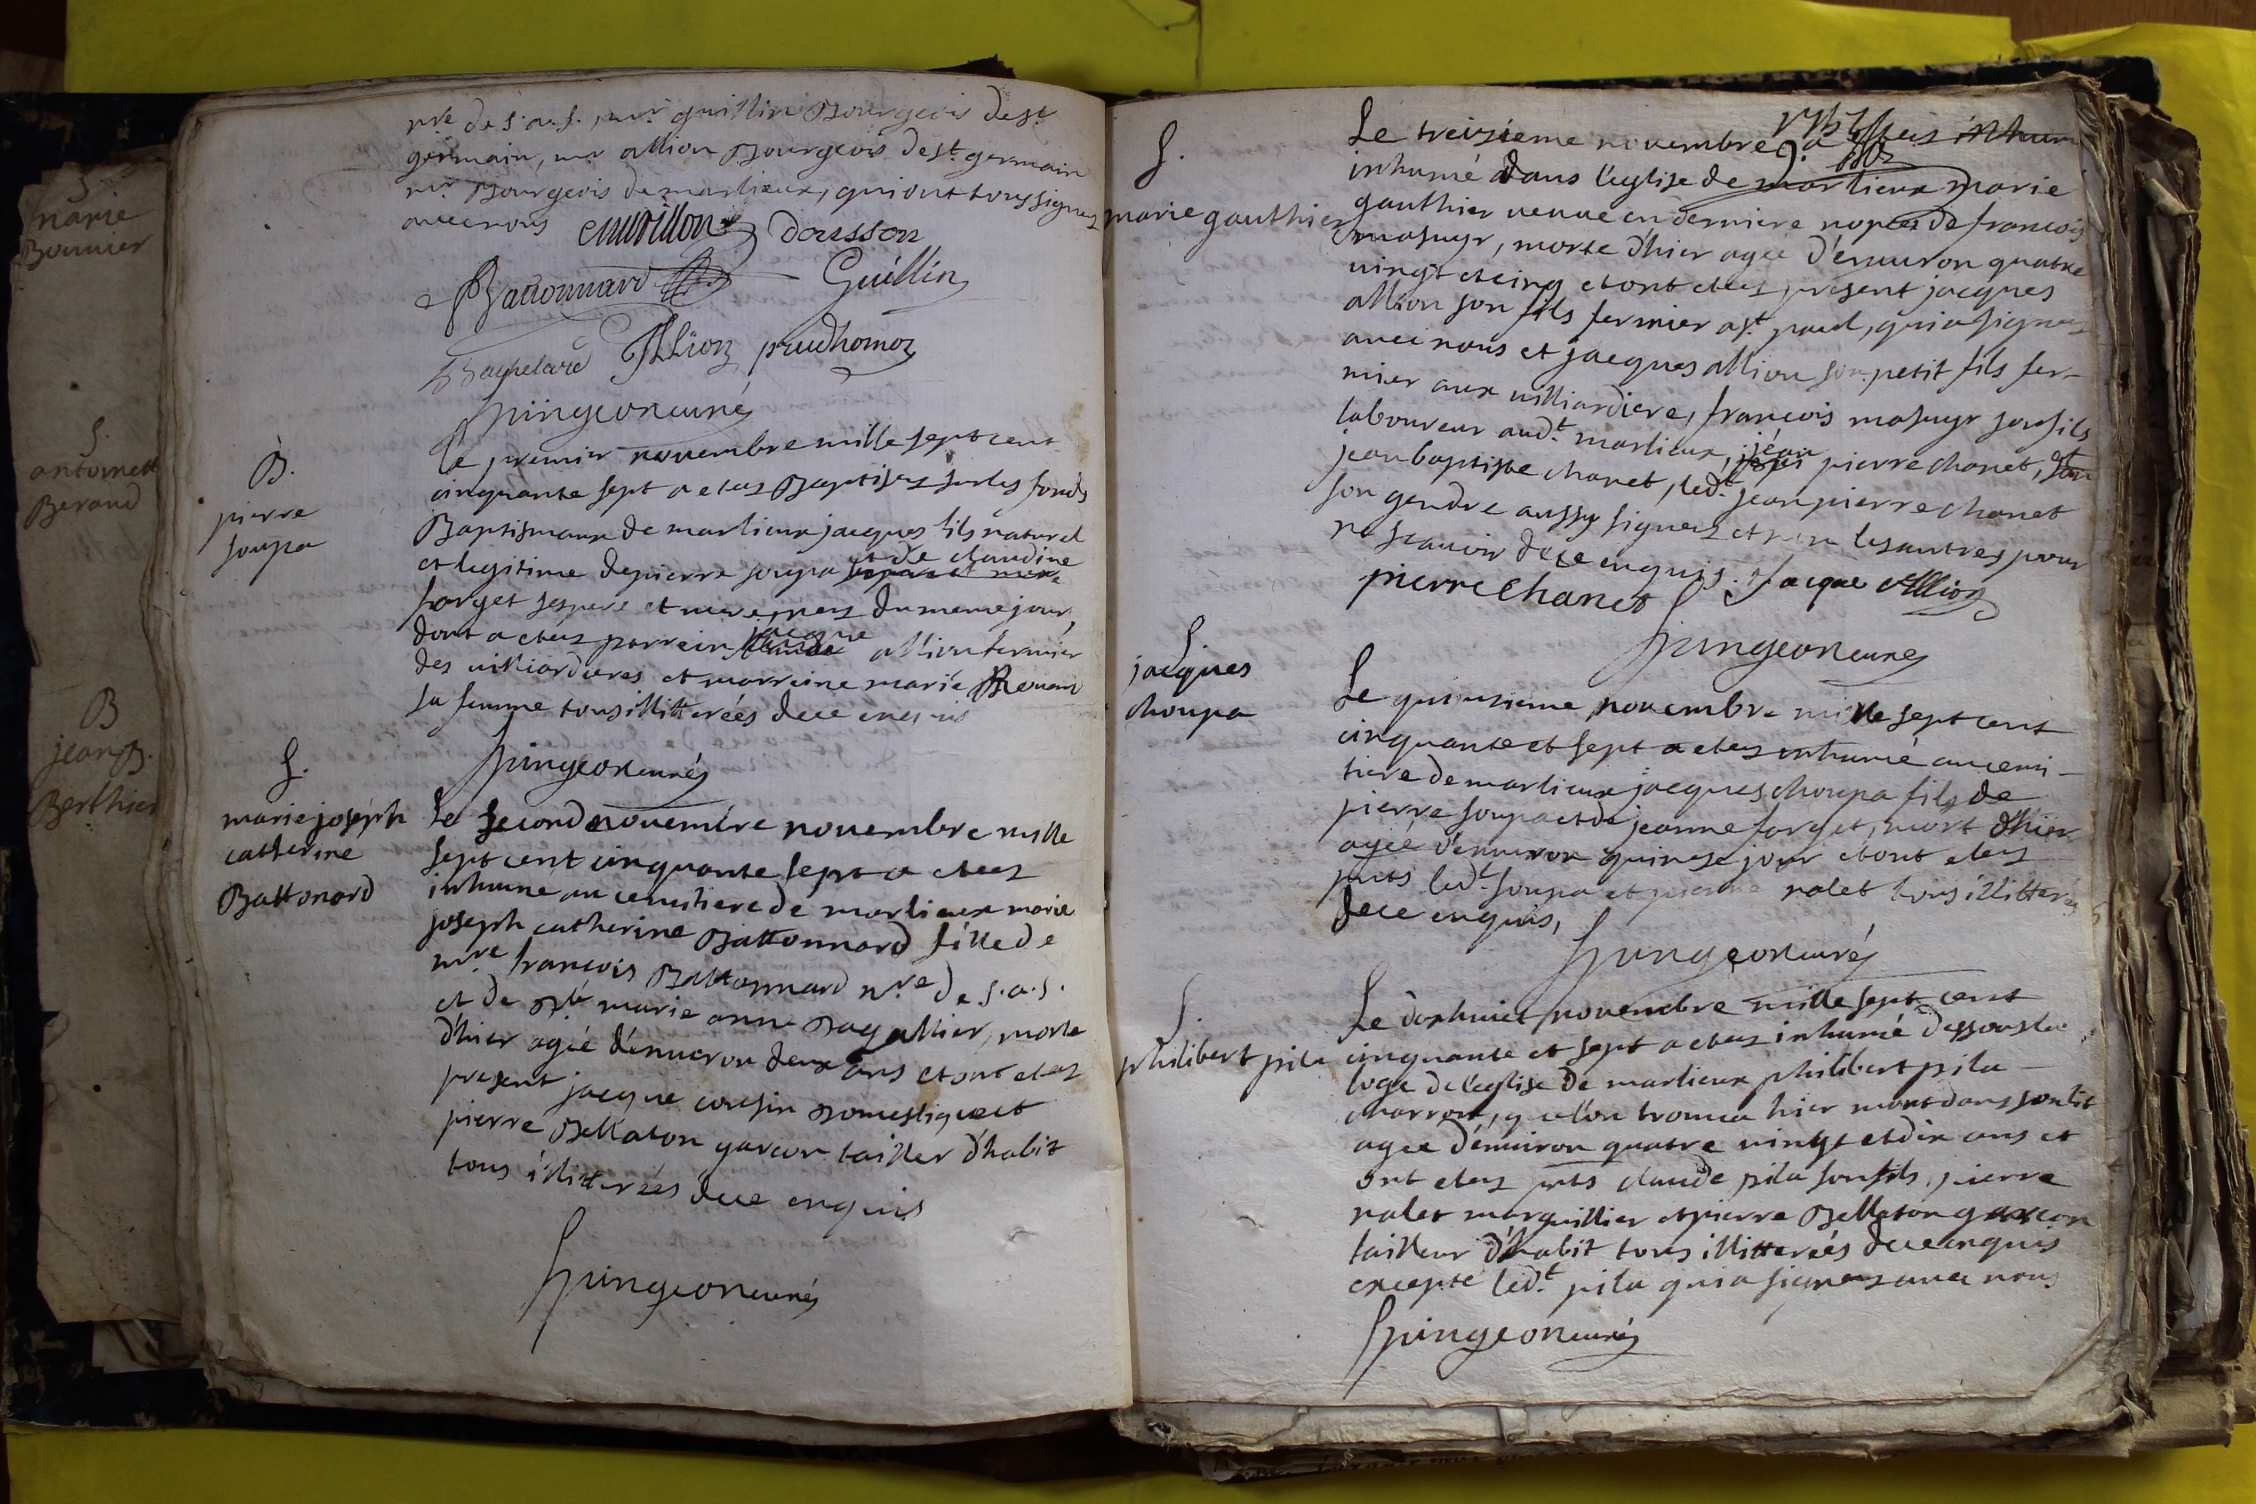 narie
Bonnier
S.
antoinett
Beraud
B
jean B.
Berthier
nre de s.a.s., mr guillin Bourgeois de st
germain, mr allion Bourgeois de st. germain
mr Bourgeois de marlieux, qui ont tous signez
avec nous
Dousson
Battonnard
Guillin
Bachelard Allion prudhomoz
pingeon curé
B.
pierre
soupa
Le premier novembre mille sept cent
cinquante sept a etez Baptisez sur les fonds
Baptismaux de marlieux jacques fils naturel
et legitime de pierre soupa et de claudine
forget ses pere et mere, nez du meme jour,
dont a etez parrein jacque allion fermier
des villiardieres et marreine marie
sa femme tous illitterées de ce enquis
pingeon curé
S.
marie joseph
catherine
Battonard
Le second novembre novembre mille
sept cent cinquante sept a etez
inhume au cemitiere de marlieux marie
joseph catherine Battonnard fille de
mre françois Battonnard nre de s.a.s.
et de dlle marie anne Bagallier, morte
d'hier agée d'enveron deux ans et ont etez
present jacque cousin Domestique et
pierre Bellaton garcon tailler d'habit
tous illitterées de ce enquis
pingeon curé
S.
marie gauthier
Le treizieme novembre a etez inhum
inhumé dans l'eglise de marlieux marie
gauthier veuve en derniere nopces de francois
masuyr, morte d'hier agee d'enuuron quatre
vingt et cinq et ont etez present jacques
allion son fils fermier a st. paul, qui a signez
avec nous et jacques allion son petit fils fer-
mier aux villiardiere, françois masuyr son fils
laboureur audt. marlieux, jean pierre chanet, et
jean baptiste chanet, ledt. jean pierre chanet
son gendre aussy signez et non les autres pour
ne scavoir de ce enquis. Jacque Allion
pierre Chanet
pingeon curé
S
jacques
choupa
Le quinsieme novembre mille sept cent
cinquante et sept a etez inhumé au cemi-
tiere de marlieux jacques choupa fils de
pierre soupa et de jeanne forget, mort d'hier
agée d'enuuron quinse jour et ont etez
prts ledt. soupa et pierre nalet tous illitterés
de ce enquis,
pingeon curé
S.
philibert pila
Le dixhuict novembre mille sept cent
cinquante et sept a etez inhumé dessous la
loge de l'eglise de marlieux philibert pila
charron, que l'on trouva hier mort dans son lit
agee d'enuiron quatre vingt et dix ans et
ont etez prts claude pila son fils, pierre
nalet marguillier et pierre Bellaton garcon
tailleur d'habit tous illitterées de ce enquis
excepté ledt. pila qui a signez avec nous
pingeon curé